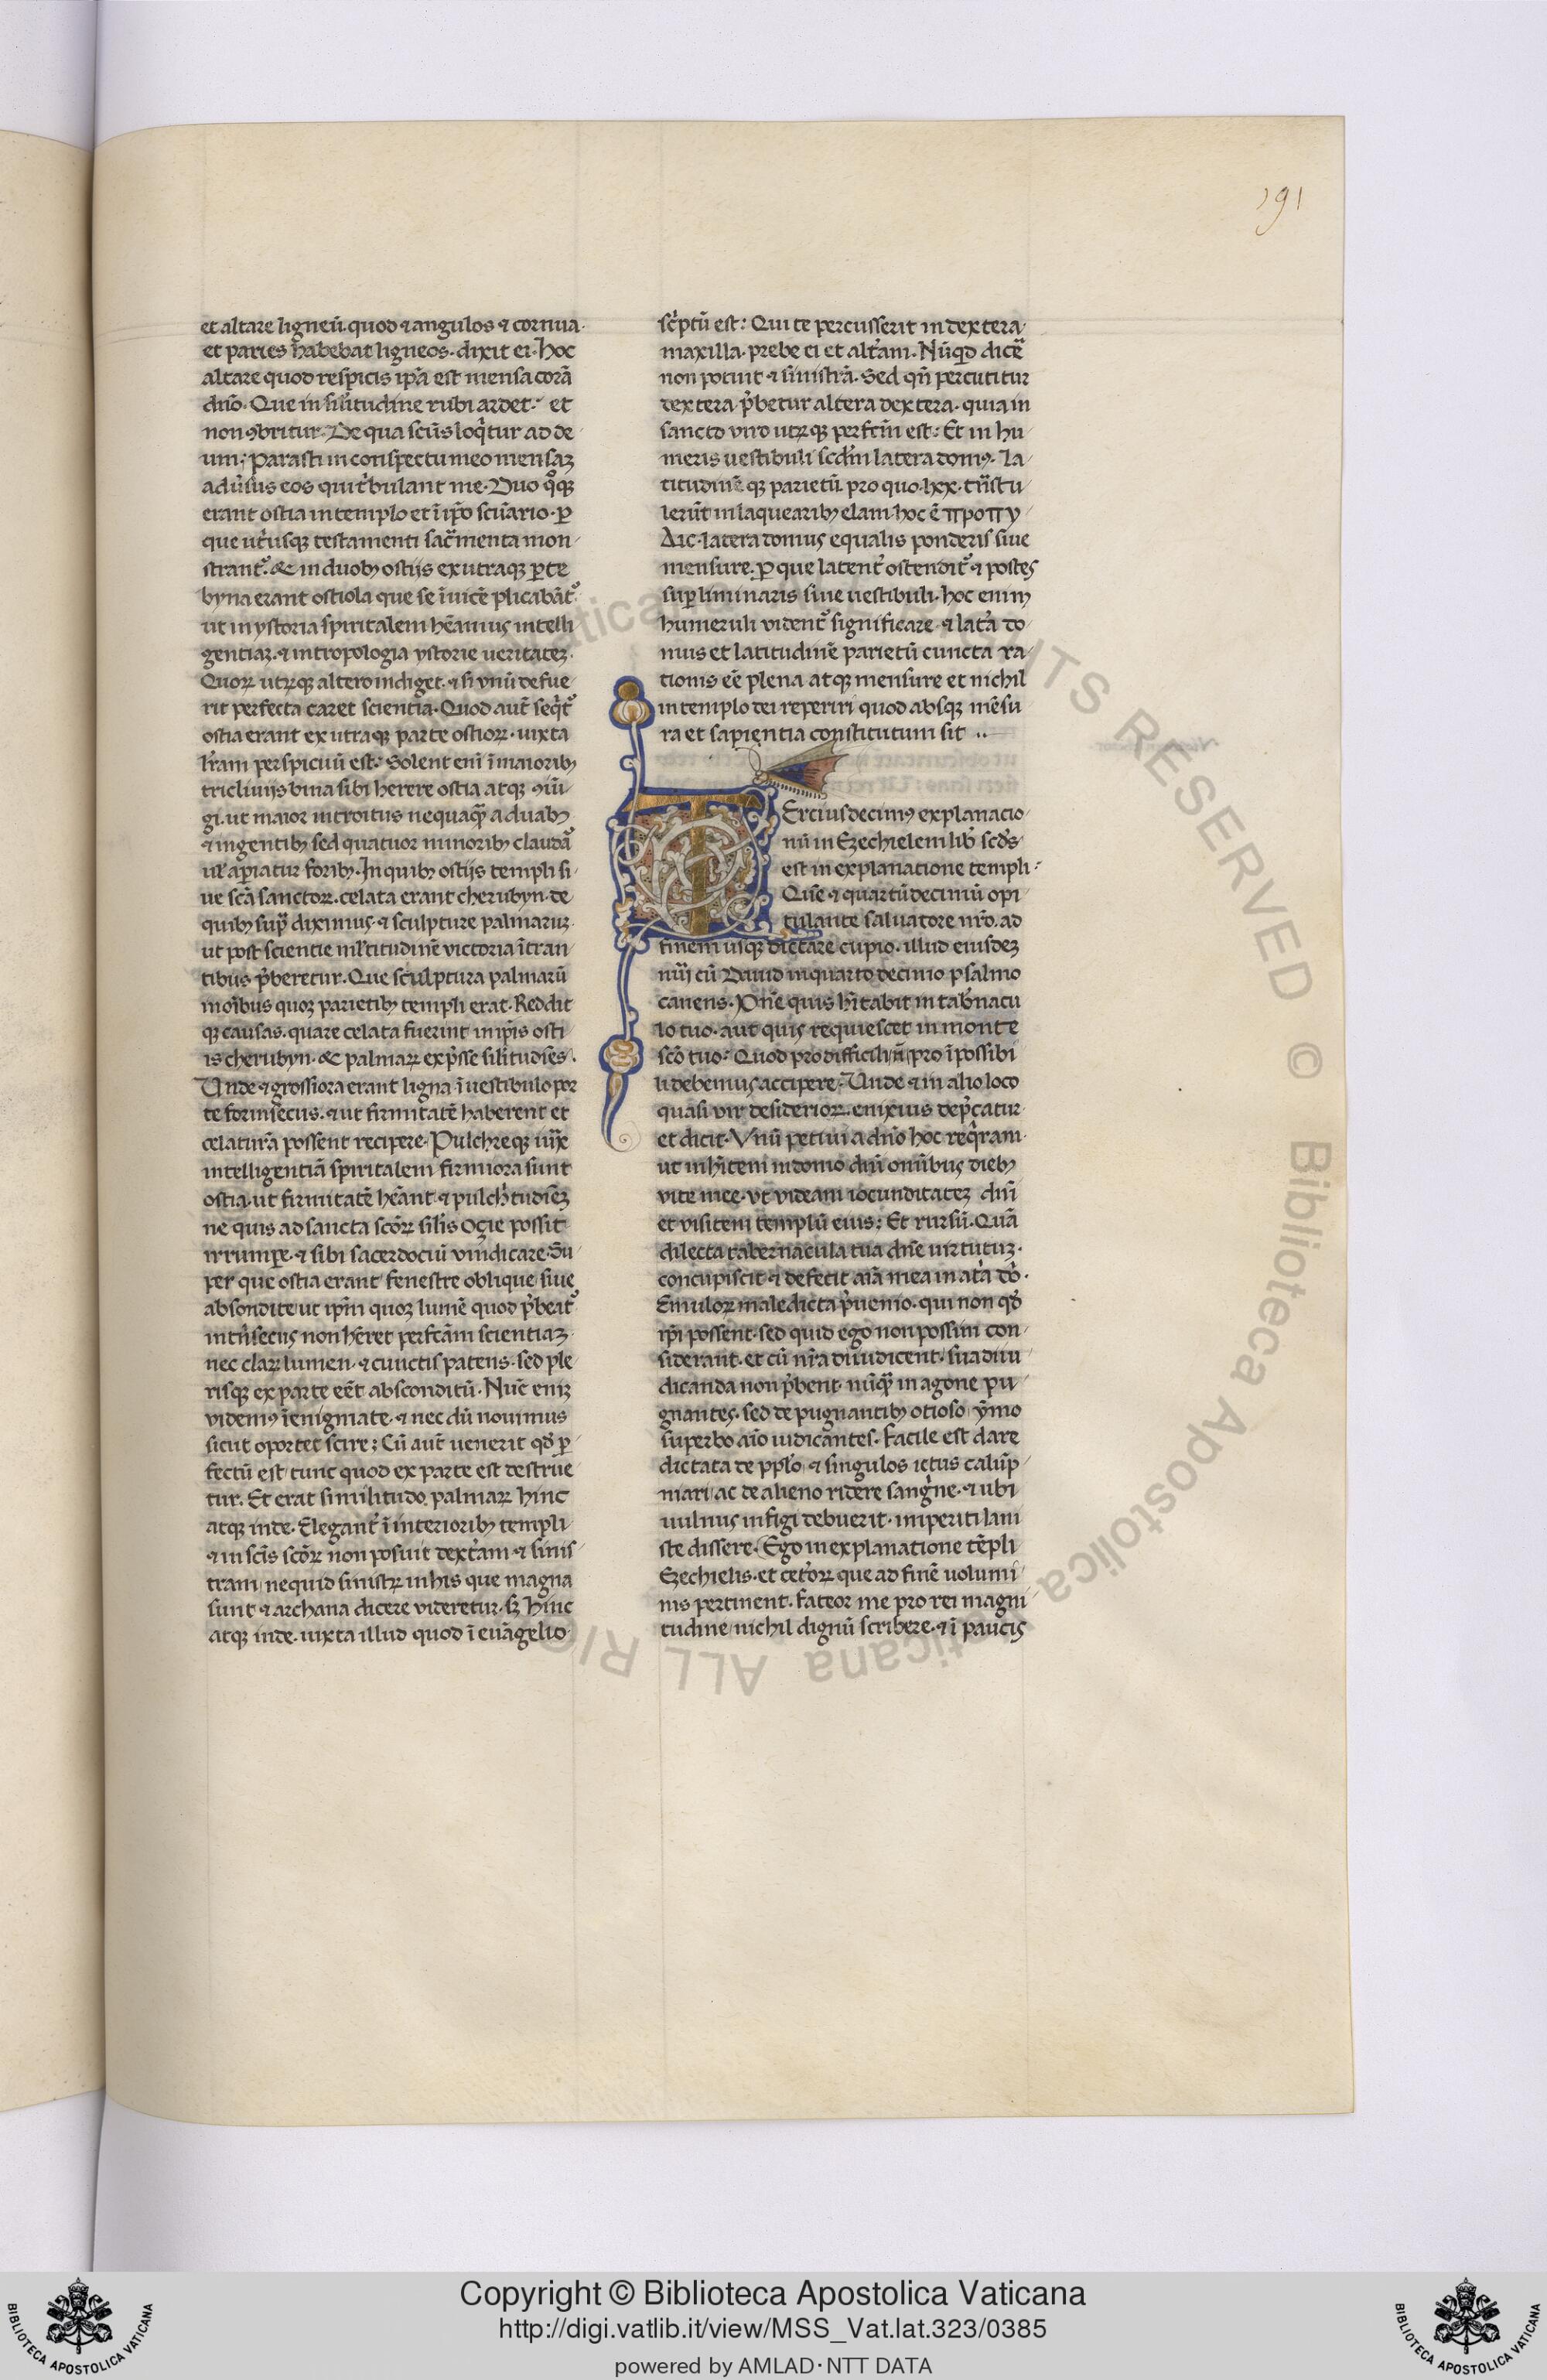 191
et altare ligneũ. quod ⁊ angulos ⁊ cornua
et paries habebat ligneos. dixit ei. hoc
altare quod respicis ip̃a est mensa corã
dño. Que in sil̓itudine rubi ardet: et
non ꝯbritur. De qua scũs loq̓tur ad de
um: Parasti in conspectu meo mensaꝫ
adũsus eos qui t̓bulant me. Duo q̊qꝫ
erant ostia in templo et ĩ ip̃o scũario. ꝑ
que ut̓usqꝫ testamenti sac̃menta mon
strant᷑. & in duobꝫ ostijs ex utraqꝫ ꝑte
byna erant ostiola que se ĩuicẽ plicabãt᷑.
ut in ystoria spiritalem hẽamus intelli
gentiaꝫ. ⁊ in tropologia ystorie ueritateꝫ.
Quoꝝ utꝝqꝫ altero indiget. ⁊ si vnũ defue
rit perfecta caret scientia. Quod aut̃ seq̓t᷑
ostia erant ex utraqꝫ parte ostioꝝ. iuxta
lr̃am perspicuũ est. Solent enĩ ĩ maioribꝫ
tricliniis bina sibi herere ostia atqꝫ ꝯiũ
gi. ut maior introitus nequaqᷓ a duabꝫ
⁊ ingentibꝫ sed quatuor minoribꝫ claudat᷑
ul̓ aꝑiatur foribꝫ. In quibꝫ ostijs templi si
ue scã sanctoꝝ. celata erant cherubyn. de
quibꝫ supᷓ diximus. ⁊ sculpture palmaruꝫ.
ut post scientie ml̓titudinẽ victoria ĩtran
tibus p̓beretur. Que sculptura palmarũ
in oĩbus quoꝫ parietibꝫ templi erat. Reddit
qꝫ causas. quare celata fuerint in ip̃is osti
is cherubyn. & palmaꝝ exp̓sse sil̓itudĩes.
Unde ⁊ grossiora erant ligna ĩ uestibulo por
te forinsecus. ⁊ ut firmitatẽ haberent et
celaturã possent recipere. Pulchreqꝫ iux̃
intelligentiã spiritalem firmiora sunt
ostia. ut firmitatẽ hẽant ⁊ pulch̓tudiẽꝫ
ne quis ad sancta scõꝝ sil̓is Oçie possit
irrumꝑe. ⁊ sibi sacerdociũ vindicare. Su
per que ostia erant fenestre oblique siue
absondite ut ip̃m quoꝫ lumẽ quod p̓beat᷑
intr̃secus non hẽret perfcãm scientiaꝫ.
nec claꝝ lumen. ⁊ cunctis patens. sed ple
risqꝫ ex parte eẽt absconditũ. Nũc eniꝫ
videmꝰ ĩ enigmate. ⁊ nec dũ nouimus
sicut oportet scire: Cũ aut̃ uenerit qđ ꝑ
fectũ est tunc quod ex parte est destrue
tur. Et erat similitudo palmaꝝ hinc
atqꝫ inde. Elegant̓ ĩ interioribꝫ templi
⁊ in scĩs scõꝝ non posuit dext̓am ⁊ sinis
tram nequid sinistꝝ in his que magna
sunt ⁊ archana dicere videretur. sꝫ hinc
atqꝫ inde. iuxta illud quod ĩ euãgelio
sc̓ptũ est: Qui te percusserit in dextera
maxilla. prebe ei et alt̓am. Nũqd dicẽ
non potuit ⁊ sinistrã. Sed qñ percutitur
dextera p̓betur altera dextera. quia in
sancto viro utꝝqꝫ perfctm̃ est: Et in hu
meris uestibuli scdm̃ latera domꝰ. la
titudinẽqꝫ parietũ. pro quo. lxx. trãstu
lerũt in laquearibꝫ elam. hoc ẽ προπυ
Διϲ. latera domus equalis ponderis siue
mensure. ꝑ que latent̓ ostendit᷑. ⁊ postes
suꝑliminaris siue uestibuli. hoc enim
humeruli vident᷑ significare. ⁊ lat̓a do
mus et latitudinẽ parietũ cuncta ra
tionis eẽ plena atqꝫ mensure et nichil
in templo dei reperiri quod absqꝫ mẽsu
ra et sapientia constitutum sit ..
TErciusdecimꝰ explanacio
nũ in Ezechielem lib̓ scđs
est in explanatione templi:
Quẽ ⁊ quartũdecimũ opi
tulante saluatore nr̃o. ad
finem usqꝫ dictare cupio. illud eiusdeꝫ
nũij cũ Dauid in quarto decimo psalmo
canens. Dñe quis hĩtabit in tab̓nacu
lo tuo. aut quis requiescet in monte
scõ tuo: Quod pro difficili ñ pro ĩpossibi
li debemus accipere. Unde ⁊ in alio loco
quasi vir desiderioꝝ. enixius dep̓catur.
et dicit. Vnũ petiui a dño hoc req̓ram.
ut inhĩtem in domo dñi omĩbus diebꝫ
vite mee. vt videam iocunditateꝫ dñi
et visitem templũ eius: Et rursũ. Quã
dilecta tabernacula tua dñe uirtutuꝫ.
concupiscit ⁊ defecit aĩa mea in at̓a dõ.
Emuloꝝ maledicta p̓uenio. qui non qđ
ip̃i possent. sed quid ego non possim con
siderant. et cũ nr̃a diiudicent. sua diiu
dicanda non p̓bent. nũqᷓ in agone pu
gnantes. sed de pugnantibꝫ otioso ymo
superbo aĩo iudicantes. Facile est dare
dictata de pp̃lo ⁊ singulos ictus calũp
niari ac de alieno ridere sang̓ne. ⁊ ubi
uulnus infigi debuerit. imperiti lani
ste dissere. Ego in explanatione tẽpli
Ezechielis. et cet̓oꝝ que ad finẽ uolumi
nis pertinent. fateor me pro rei magni
tudine nichil dignũ scribere. ⁊ ĩ paucis
Copyright © Biblioteca Apostolica Vaticana
http://digi.vatlib.it/view/MSS_Vat.lat.323/0385
powered by AMLAD·NTT DATA